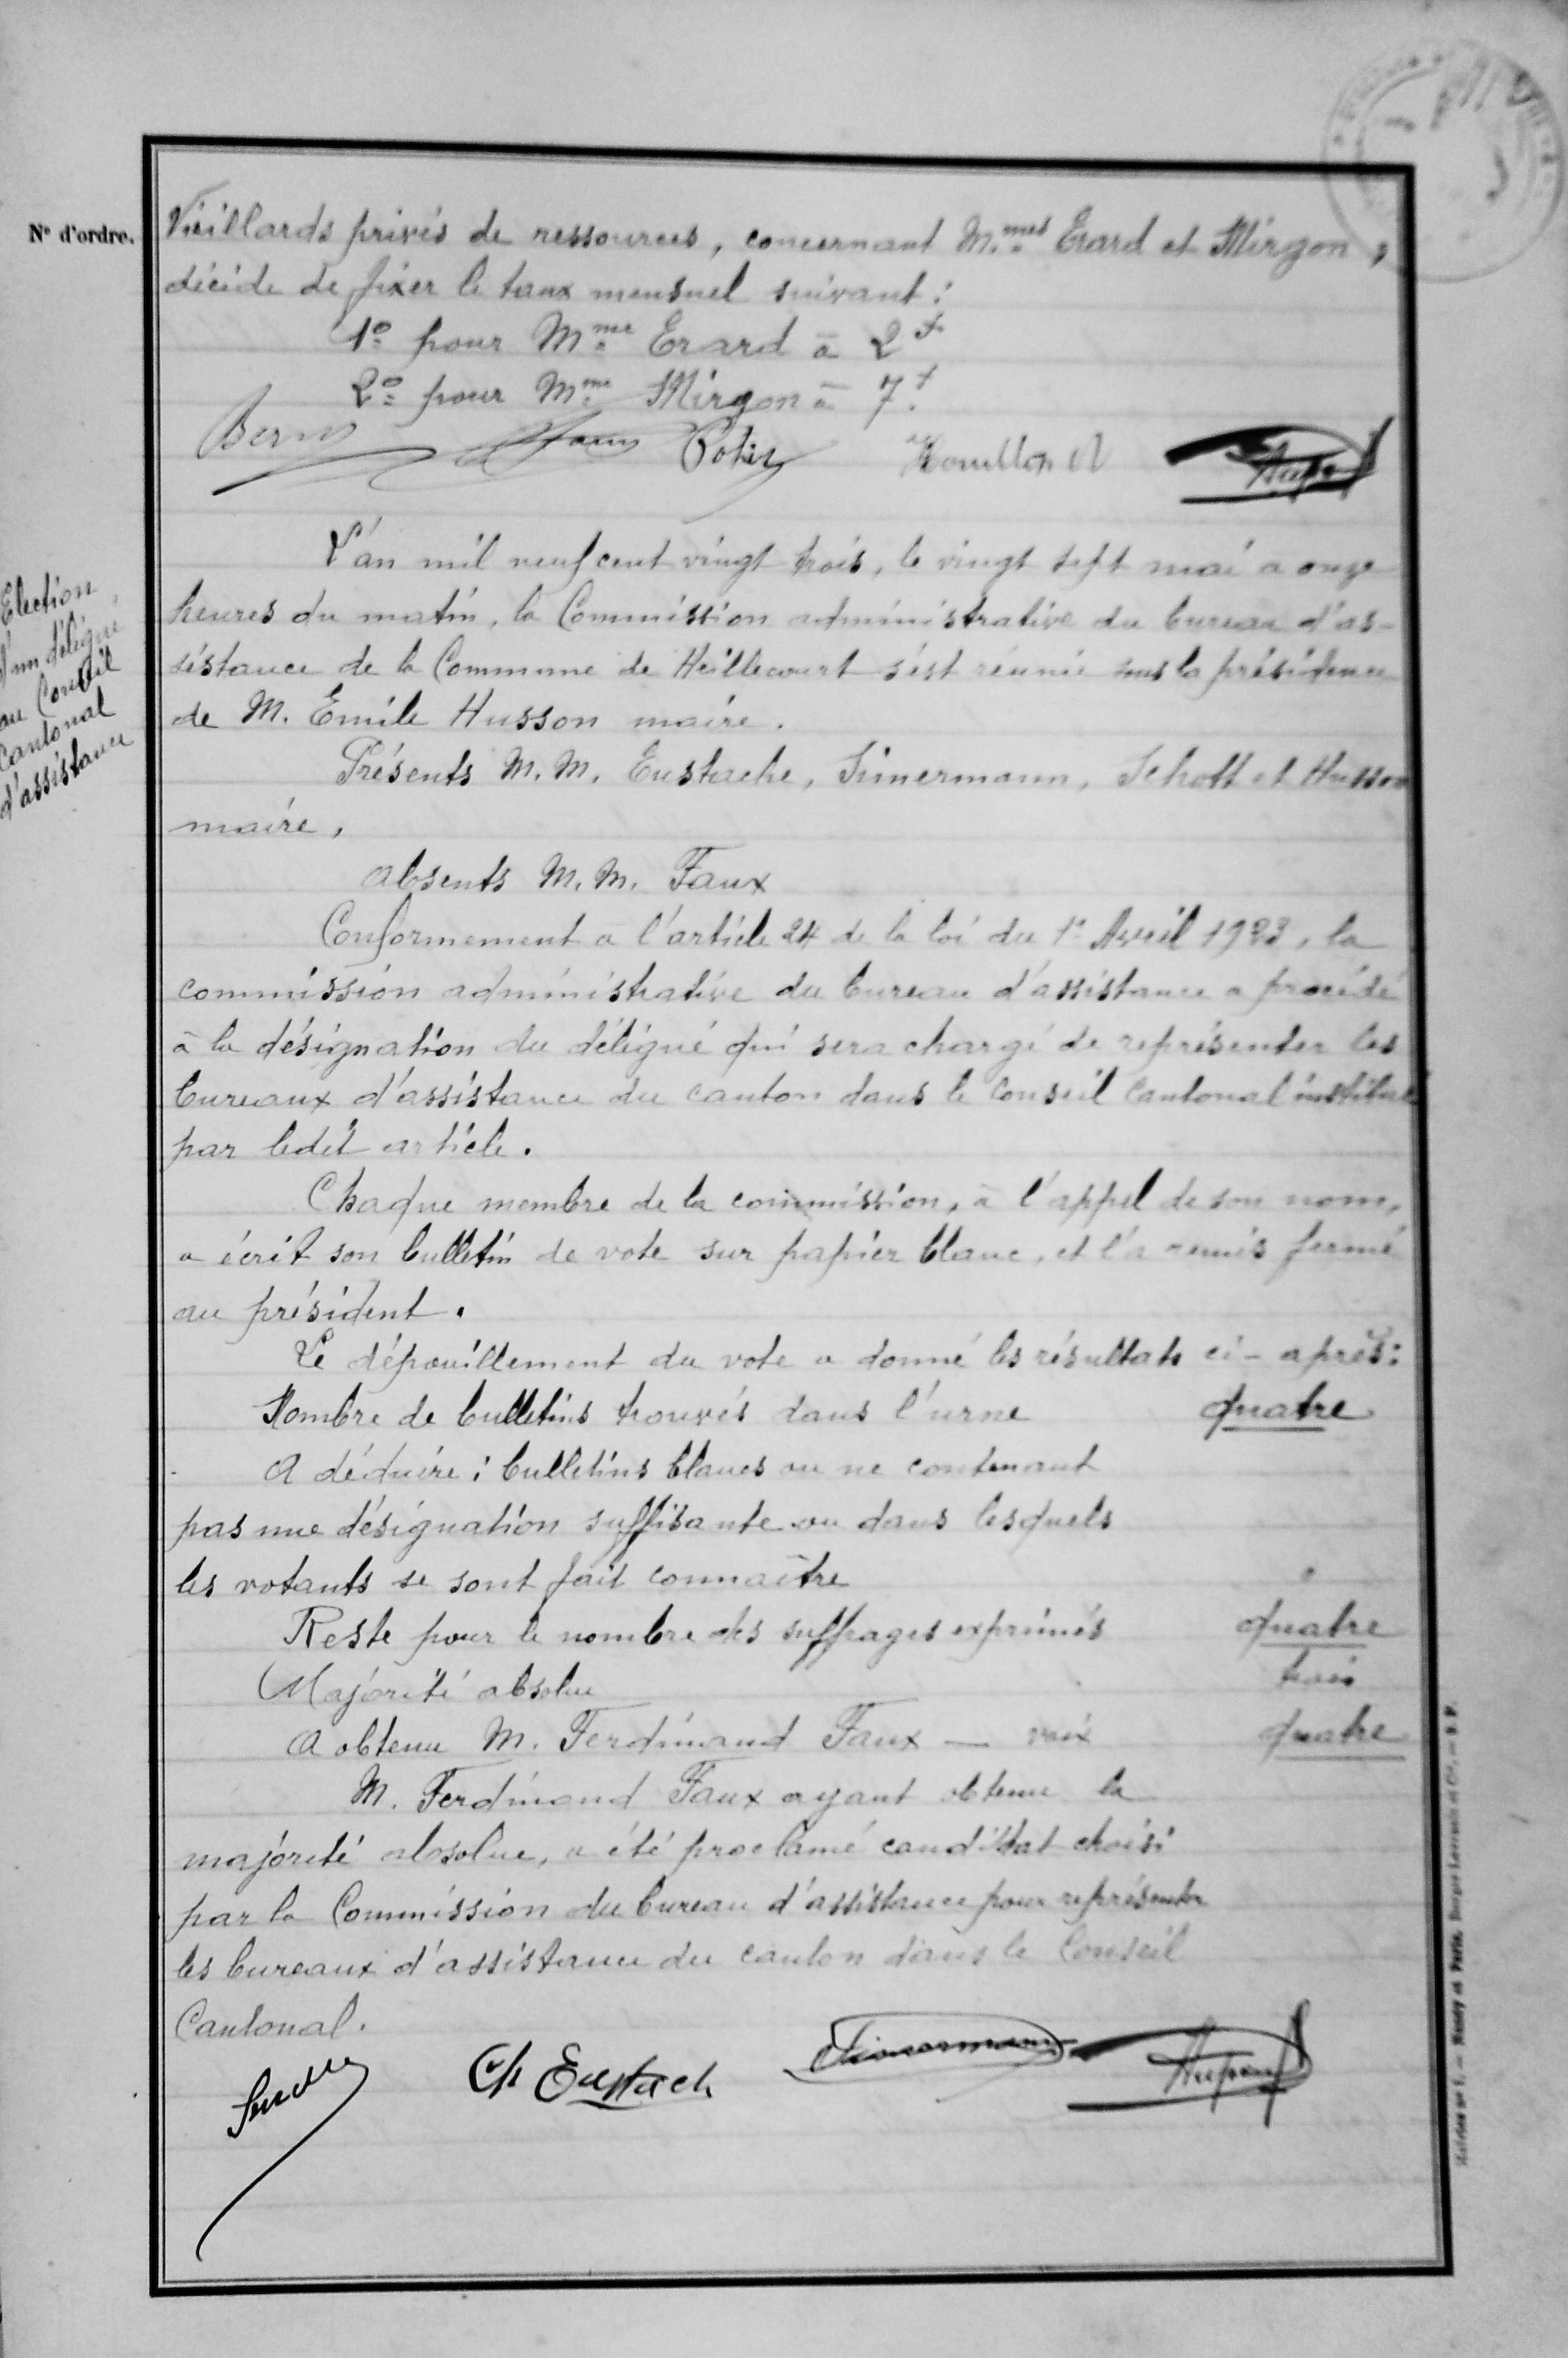 N° d'ordre.
Vieillards privés de ressources, concernant M.mes Erard et Mirgon,
décide de fixer le taux mensuel suivant :
1° pour Mme Erard à 2f
2° pour Mme Mirgon à 7f
Potier
Election
d'un délégué
au Conseil
Cantonal
d'assistance
L'an mil neuf cent vingt trois, le vingt sept mai a onze
heures du matin, la Commission administrative du bureau d'as-
sistance de la Commune de Heillecourt s'est réunie sous la présidence
de M. Emile Husson maire.
Présents M. M. Eustache, Simermann, Schott et Husson
maire,
absents M. M. Faux
Conformement a l'article 24 de la loi du 1er Avril 1923, la
commission administrative du bureau d'assistance a procédé
à la désignation du délégué qui sera chargé de représenter les
bureaux d'assistance du canton dans le Conseil Cantonal institué
par ledit article.
Chaque membre de la commission, à l'appel de son nom,
a écrit son bulletin de vote sur papier blanc, et l'a remis fermé
au président.
Le dépouillement du vote a donné les résultats ci-après :
Nombre de bulletins trouvés dans l'urne quatre
A déduire : bulletins blancs ou ne contenant
pas une désignation suffisante ou dans lesquels
les votants se sont fait connaître
Reste pour le nombre des suffrages exprimés quatre
Majorité absolue trois
A obtenu M. Ferdinand Faux — voix quatre
M. Ferdinand Faux ayant obtenu la
majorité absolue, a été proclamé candidat choisi
par la Commission du bureau d'assistance pour représenter
les bureaux d'assistance du canton dans le Conseil
Cantonal.
Ch Eustach